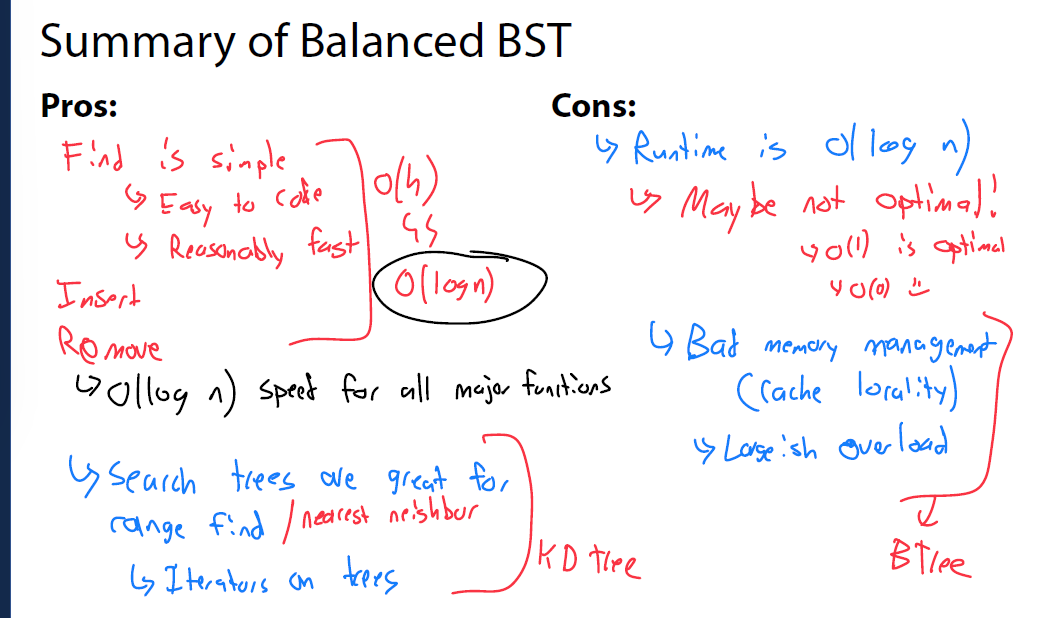 Summary of Balanced BST
Pros:
Find is simple
↳ Easy to code
↳ Reasonably fast
Insert
Remove
O(h)
↳↳
O(log n)
↳ O(log n) speed for all major functions
↳ Search trees are great for
range find / nearest neighbur
↳ Iterators on trees
KD tree
Cons:
↳ Runtime is O(log n)
↳ Maybe not optimal!
↳ O(1) is optimal
↳ O(0) :)
↳ Bad memory management
(cache locality)
↳ Large ish overload
BTree